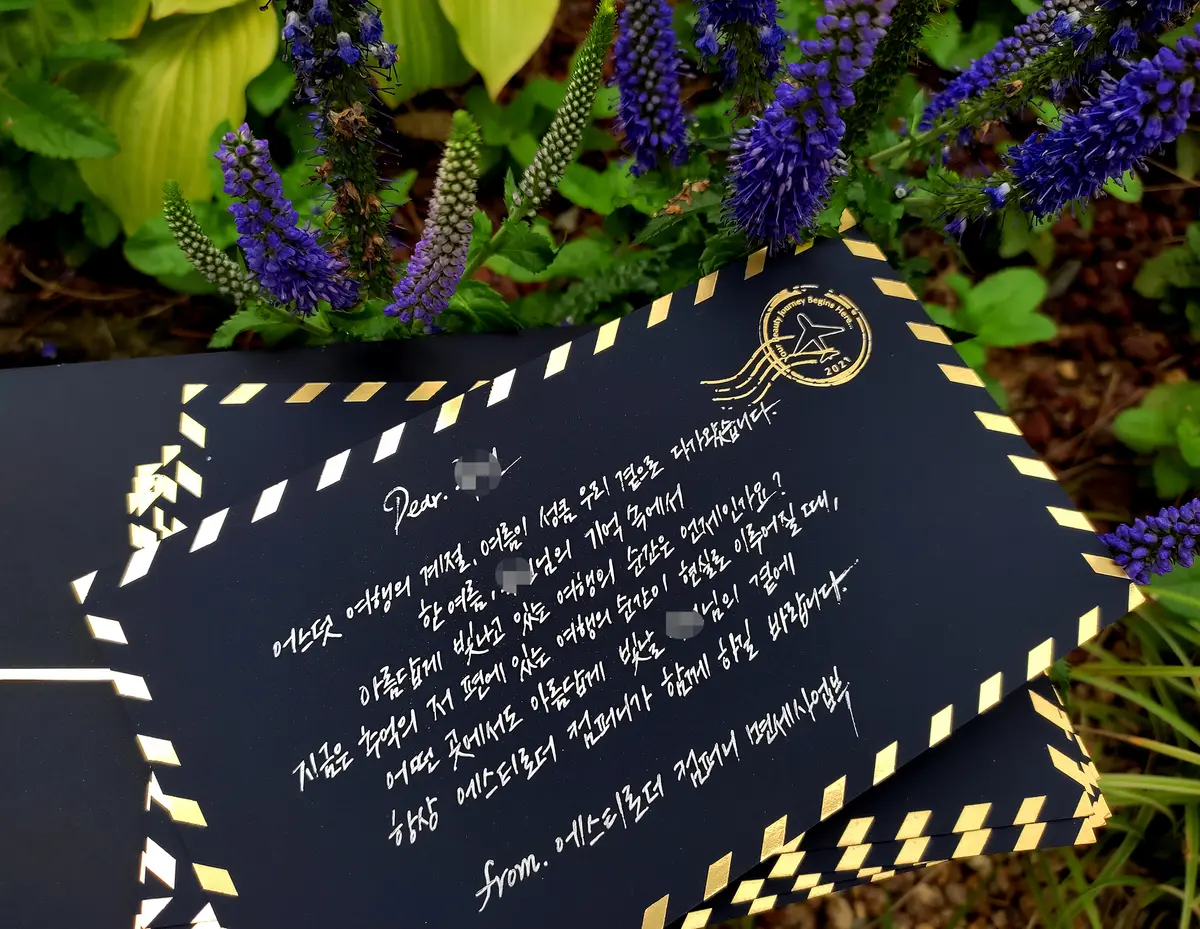 Your Beauty Journey Begins Here...
2021
Dear.
어느덧 여행의 계절, 여름이 성큼 우리 곁으로 다가왔습니다.
한 여름, 님의 기억 속에서
아름답게 빛나고 있는 여행의 순간은 언제인가요?
지금은 추억의 저 편에 있는 여행의 순간이 현실로 이루어질 때,
어떤 곳에서도 아름답게 빛날 님의 곁에
항상 에스티로더 컴퍼니가 함께 하길 바랍니다.
from. 에스티로더 컴퍼니 면세사업부